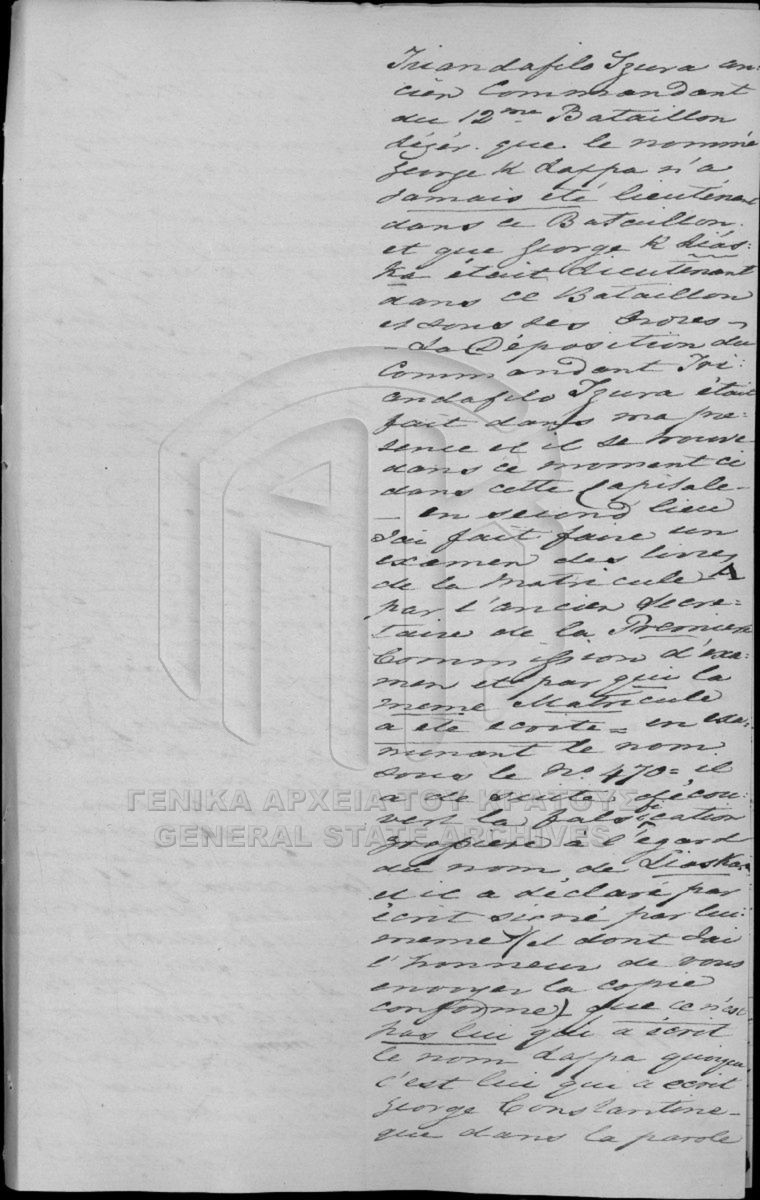 Triandafilo Tzura an:
cien Commandant
du 12me Bataillon
que le nommé
George K Lappa n'a
Jamais eté lieutenant
dans ce Bataillon.
et que George K Liás:
ka était Lieutenant
dans ce Bataillon
et sous ses Ordres –
– La Déposition du
Commandant Tri:
andafilo Tzura était
fait dans ma pre:
sence et il se trouve
dans ce moment ci
dans cette Capitale –
– en second lieu
J'ai fait faire un
examen des livres
de la Matricule A
par l'ancien Secre:
taire de la Premiere
Commission d'exa:
men et par qui la
meme Matricule
a eté ecrite = en exa:
minant le nom
sous le No. 470 = il
a de suite décou:
vert la falsification
grossiere à l'égard
du nom de Liaska
et il a déclaré par
écrit signé par lui:
meme (et dont J'ai
l'honneur de vous
envoyer la copie
conforme) que ce n'est
pas lui qui a écrit
le nom Lappa quoique
c'est lui qui a ecrit
George Constantine –
que dans la parole
ΓΕΝΙΚΑ ΑΡΧΕΙΑ ΤΟΥ ΚΡΑΤΟΥΣ
GENERAL STATE ARCHIVES